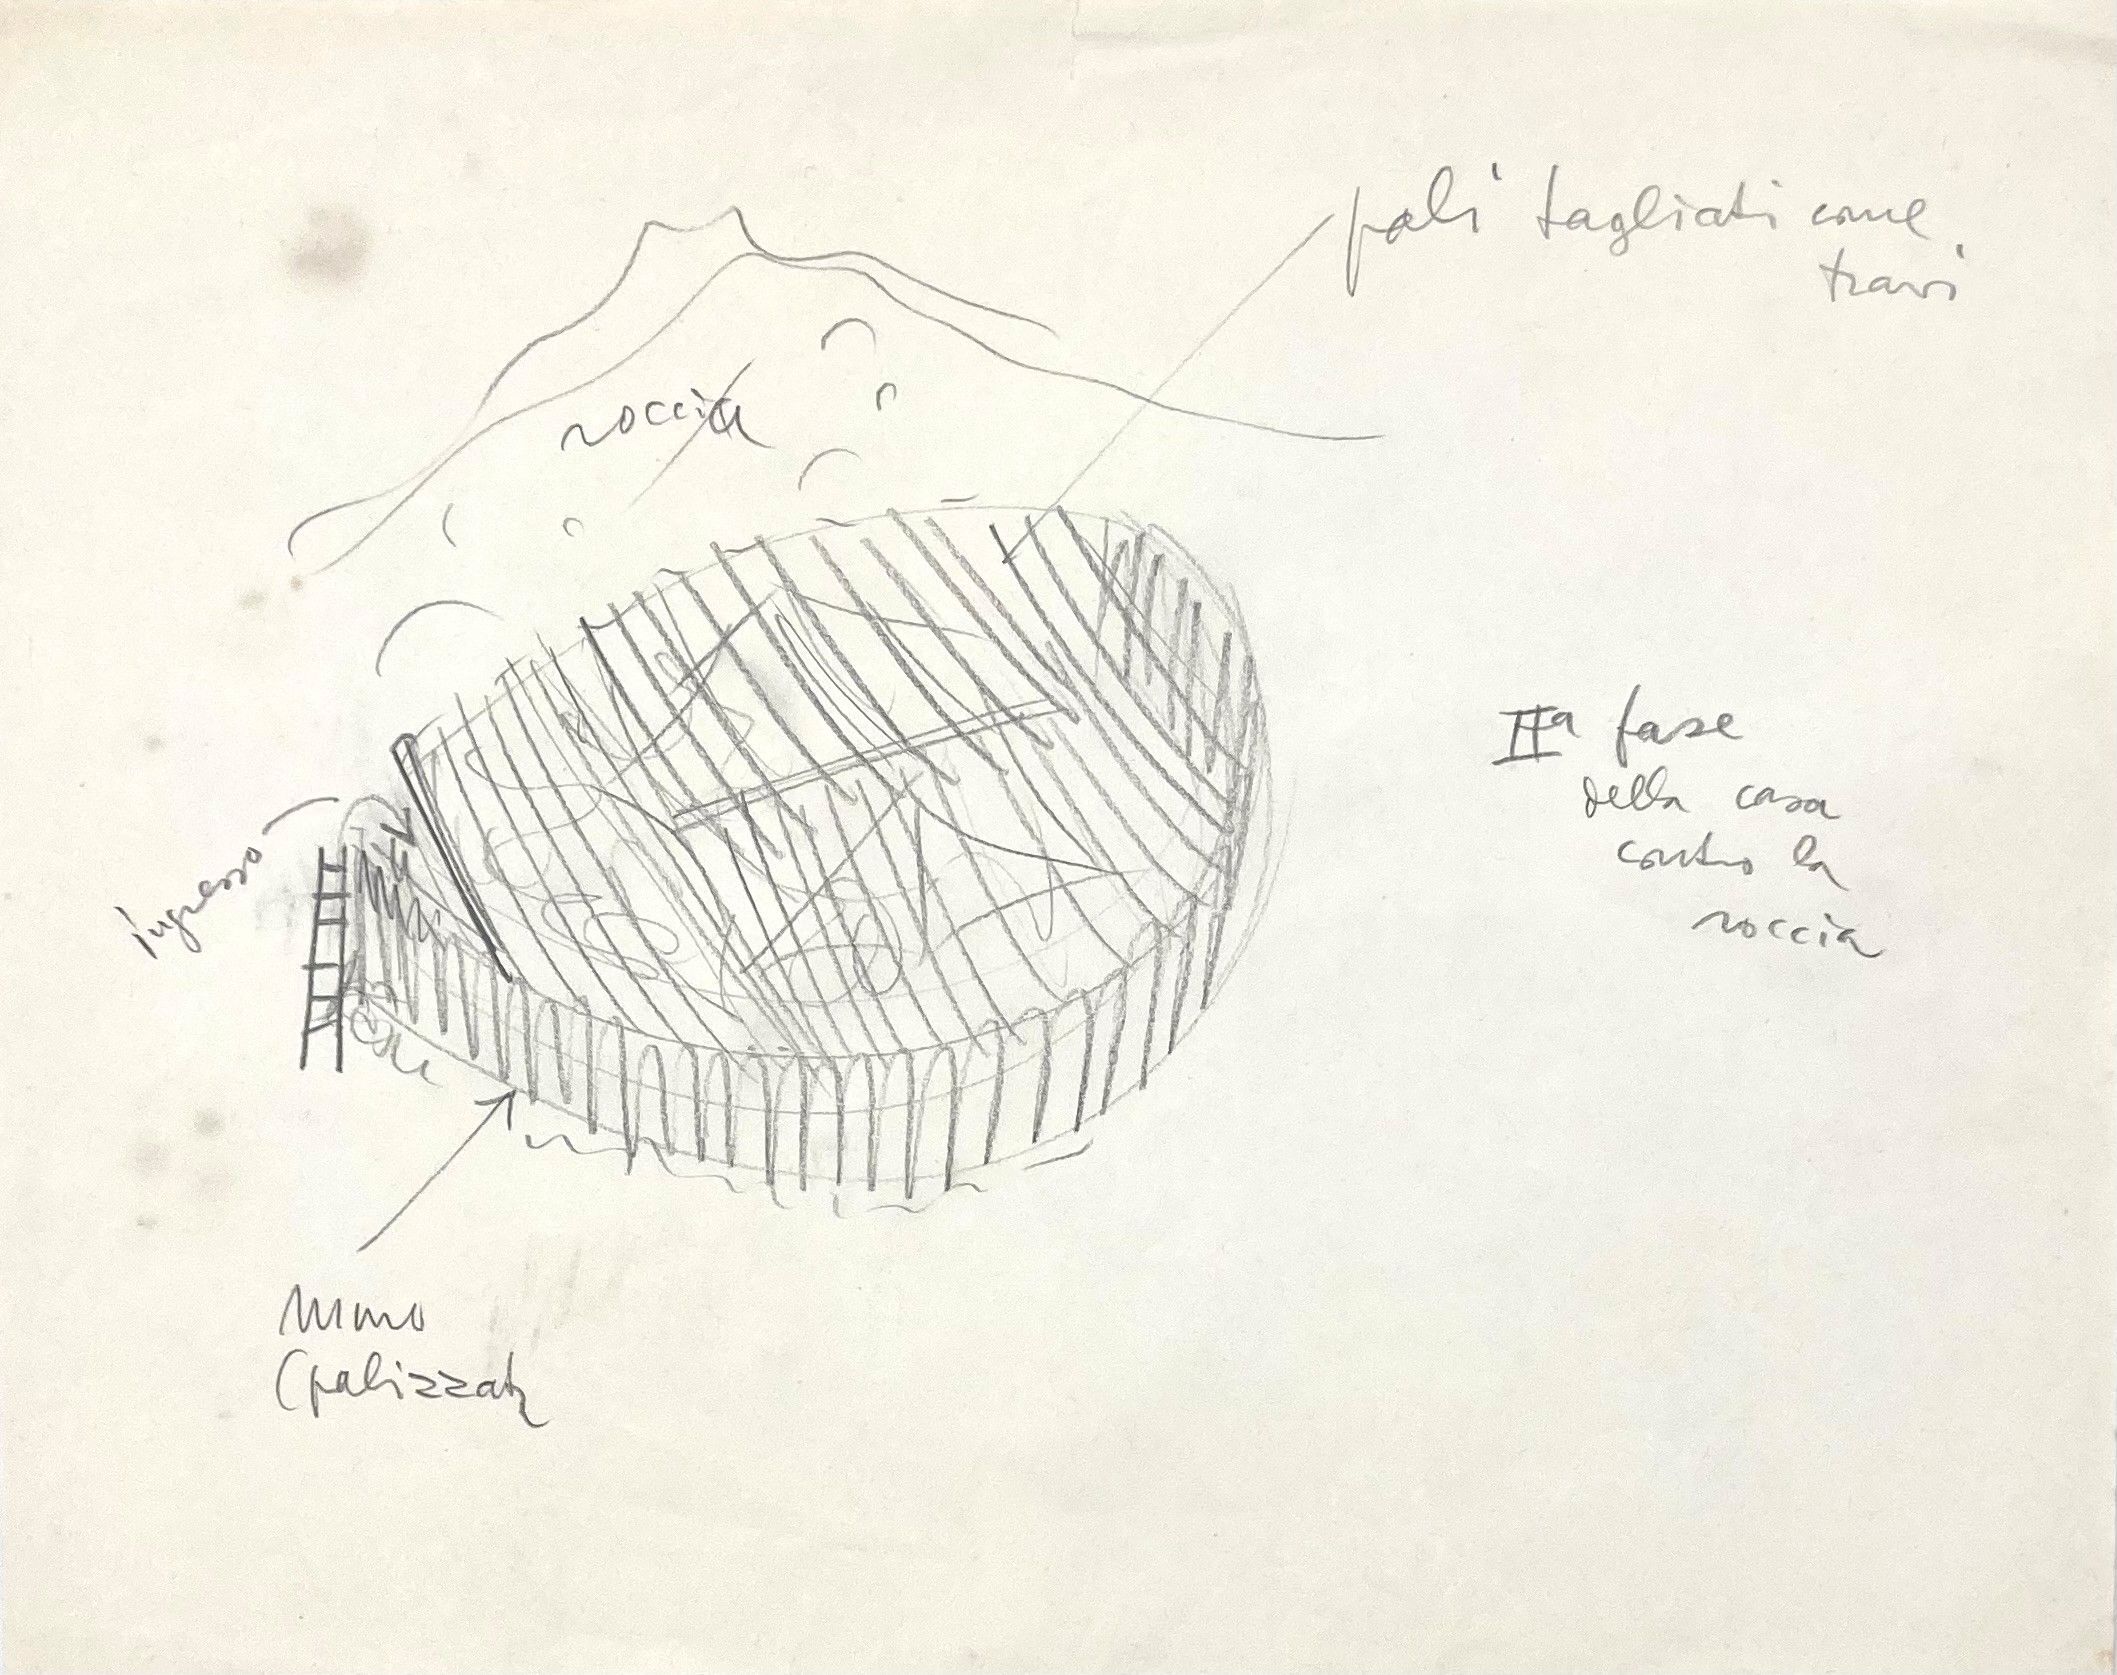 pali tagliati come
travi
roccia
IIª fase
della casa
contro la
roccia
ingresso
Muro
(palizzata